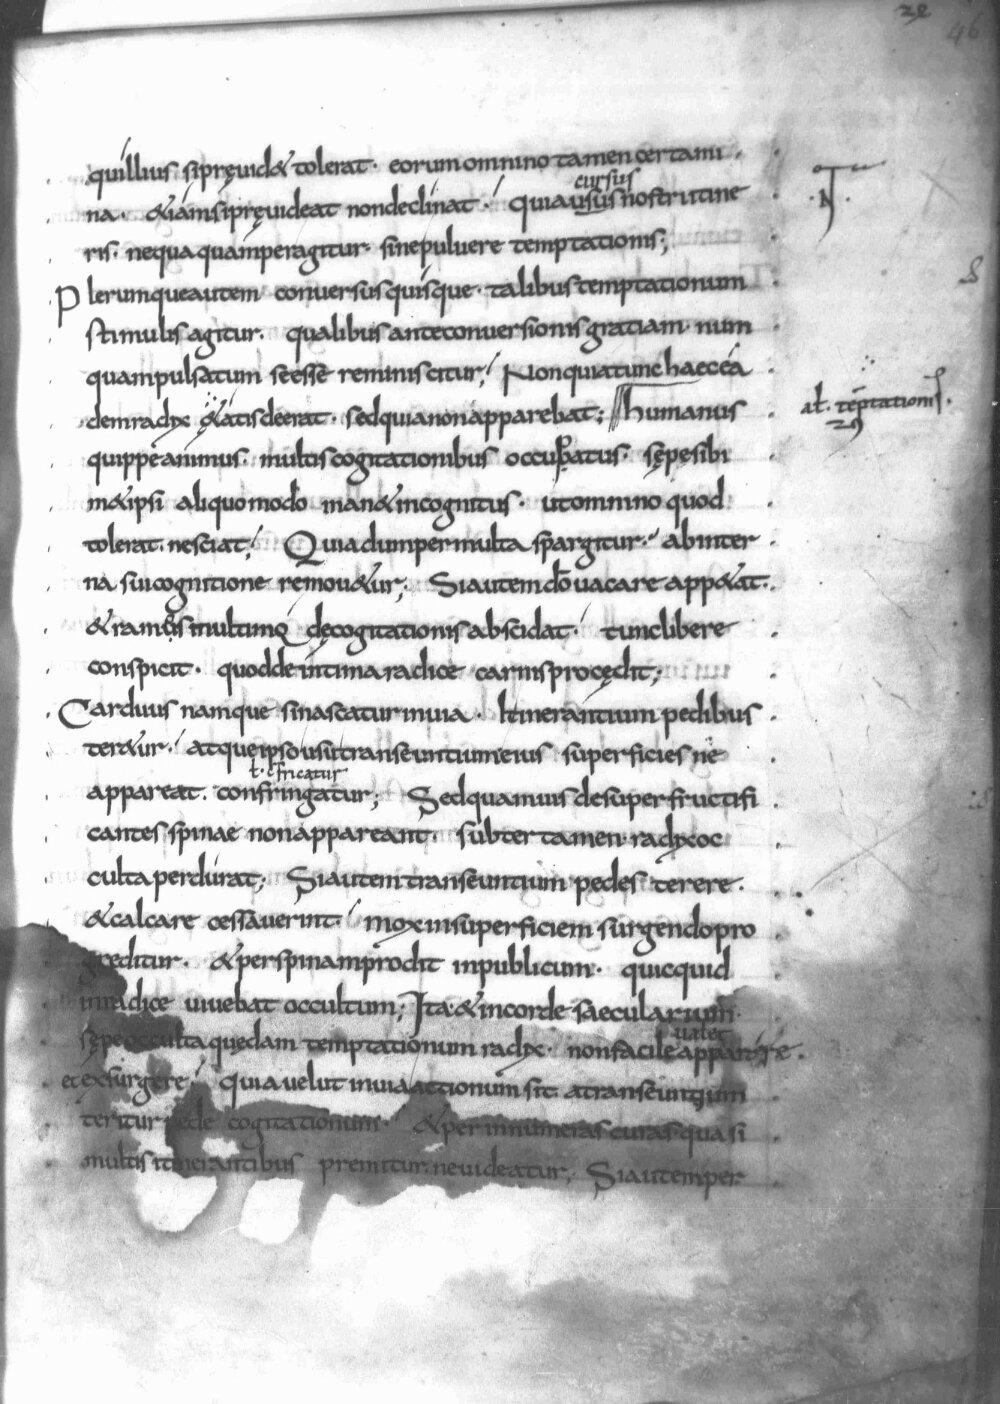 22
46
quillius si pręuid& tolerat· eorum omnino tamen certami
cursus
na· &iam si pręuideat non declinat· quia usus nostri itine
ris· nequaquam peragitur· sine puluere temptationis;
Plerumque autem conuersus quisque· talibus temptationum
stimulis agitur· qualibus ante conuersionis gratiam· num
quam pulsatum se esse reminiscitur; Non quia tunc haec ea
dem radix &atis deerat· sed quia non apparebat; Humanus
al. tēptationis.
quippe animus· multis cogitationibus occupatus· sępe sibi
m&ipsi aliquo modo man& incognitus· ut omnino quod
tolerat· nesciat; Quia dum per multa spargitur· ab inter
na sui cognitione remou&ur; Si autem dō uacare app&at·
& ramos multimo dę cogitationis abscidat· tunc libere
conspicit· quod de intima radice carnis procędit;
Carduus namque si nascatur in uia· Itinerantium pedibus
ter&ur· atque ipso usu transeuntium eius superficies ne
ł· cfricatur
appareat· confringatur; Sed quamuis desuper fructifi
cantes spinae non appareant· subter tamen radix oc
culta perdurat; Si autem transeuntium pedes terere·
& calcare cessauerint· mox in superficiem surgendo pro
greditur· & per spinam prodit in publicum· quicquid
in radice uiuebat occultum; Ita & in corde saecularium·
ualet
sępe occulta quędam temptationum radix· non facile apparere·
et exsurgere· quia uelut in uia actionum sit a transeuntium
teritur pede cogitationum· & per innumeras curas quasi
multis itinerantibus premitur ne uideatur; Si autem per